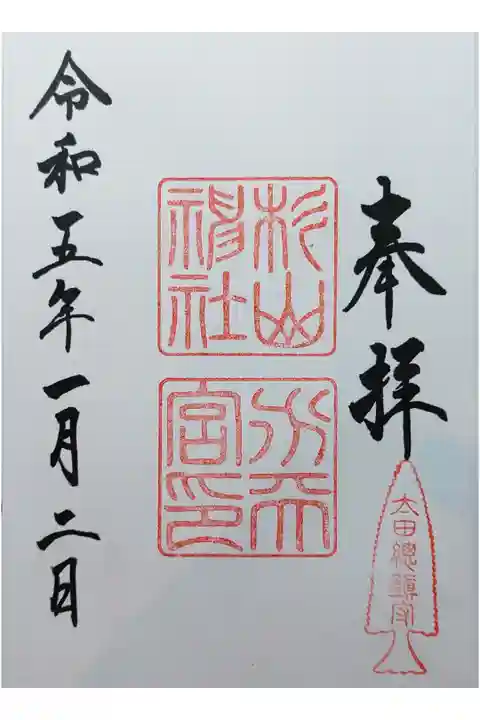 奉拝
太田總鎮守
杉山
神社
宮印
令和五年一月二日